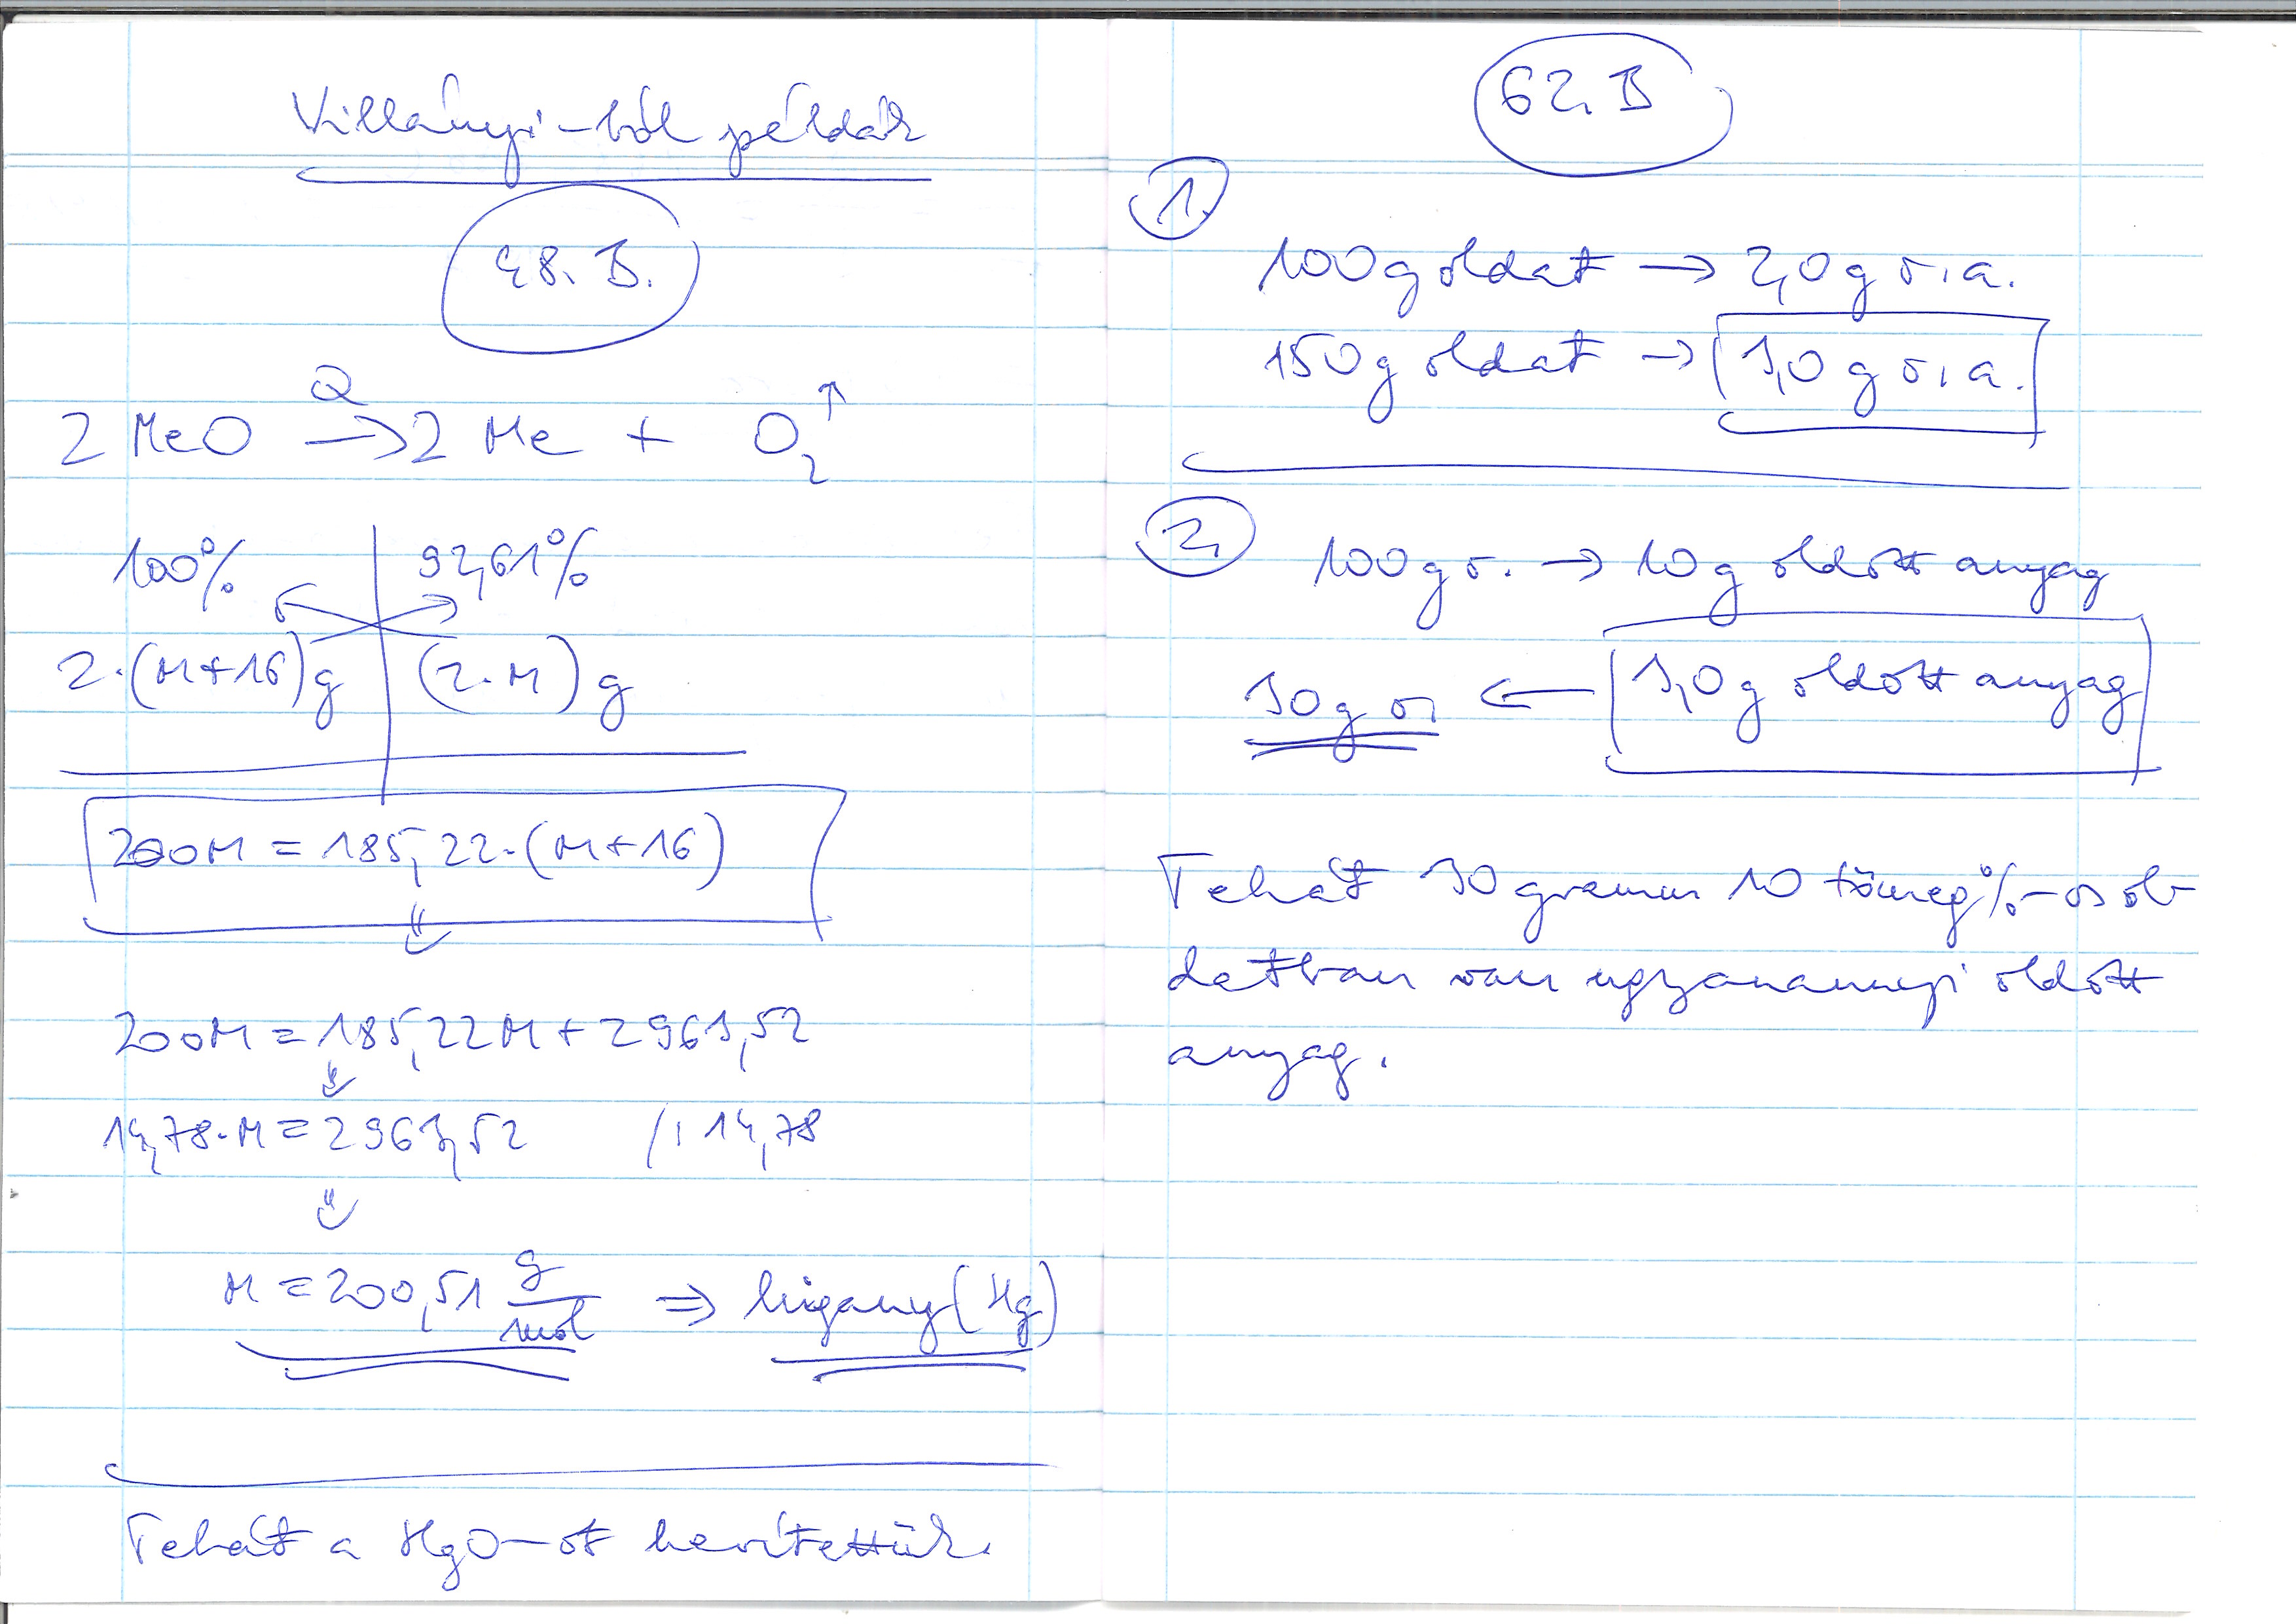 Villányi-ból példák
48. B.
2 MeO Q→ 2 Me + O₂↑
100% | 92,61%
2·(M+16)g | (2·M)g
200M = 185,22·(M+16)
⇓
200M = 185,22M + 2963,52
⇓
14,78·M = 2963,52 /:14,78
⇓
M = 200,51 g/mol ⇒ higany (Hg)
Tehát a HgO-ot hevítettük.
62. B
1.
100g oldat → 2,0g o.a.
150g oldat → 3,0g o.a.
2. 100g o. → 10g oldott anyag
30g o. ← 3,0g oldott anyag
Tehát 30 gramm 10 tömeg%-os ol-
datban van ugyanannyi oldott
anyag.